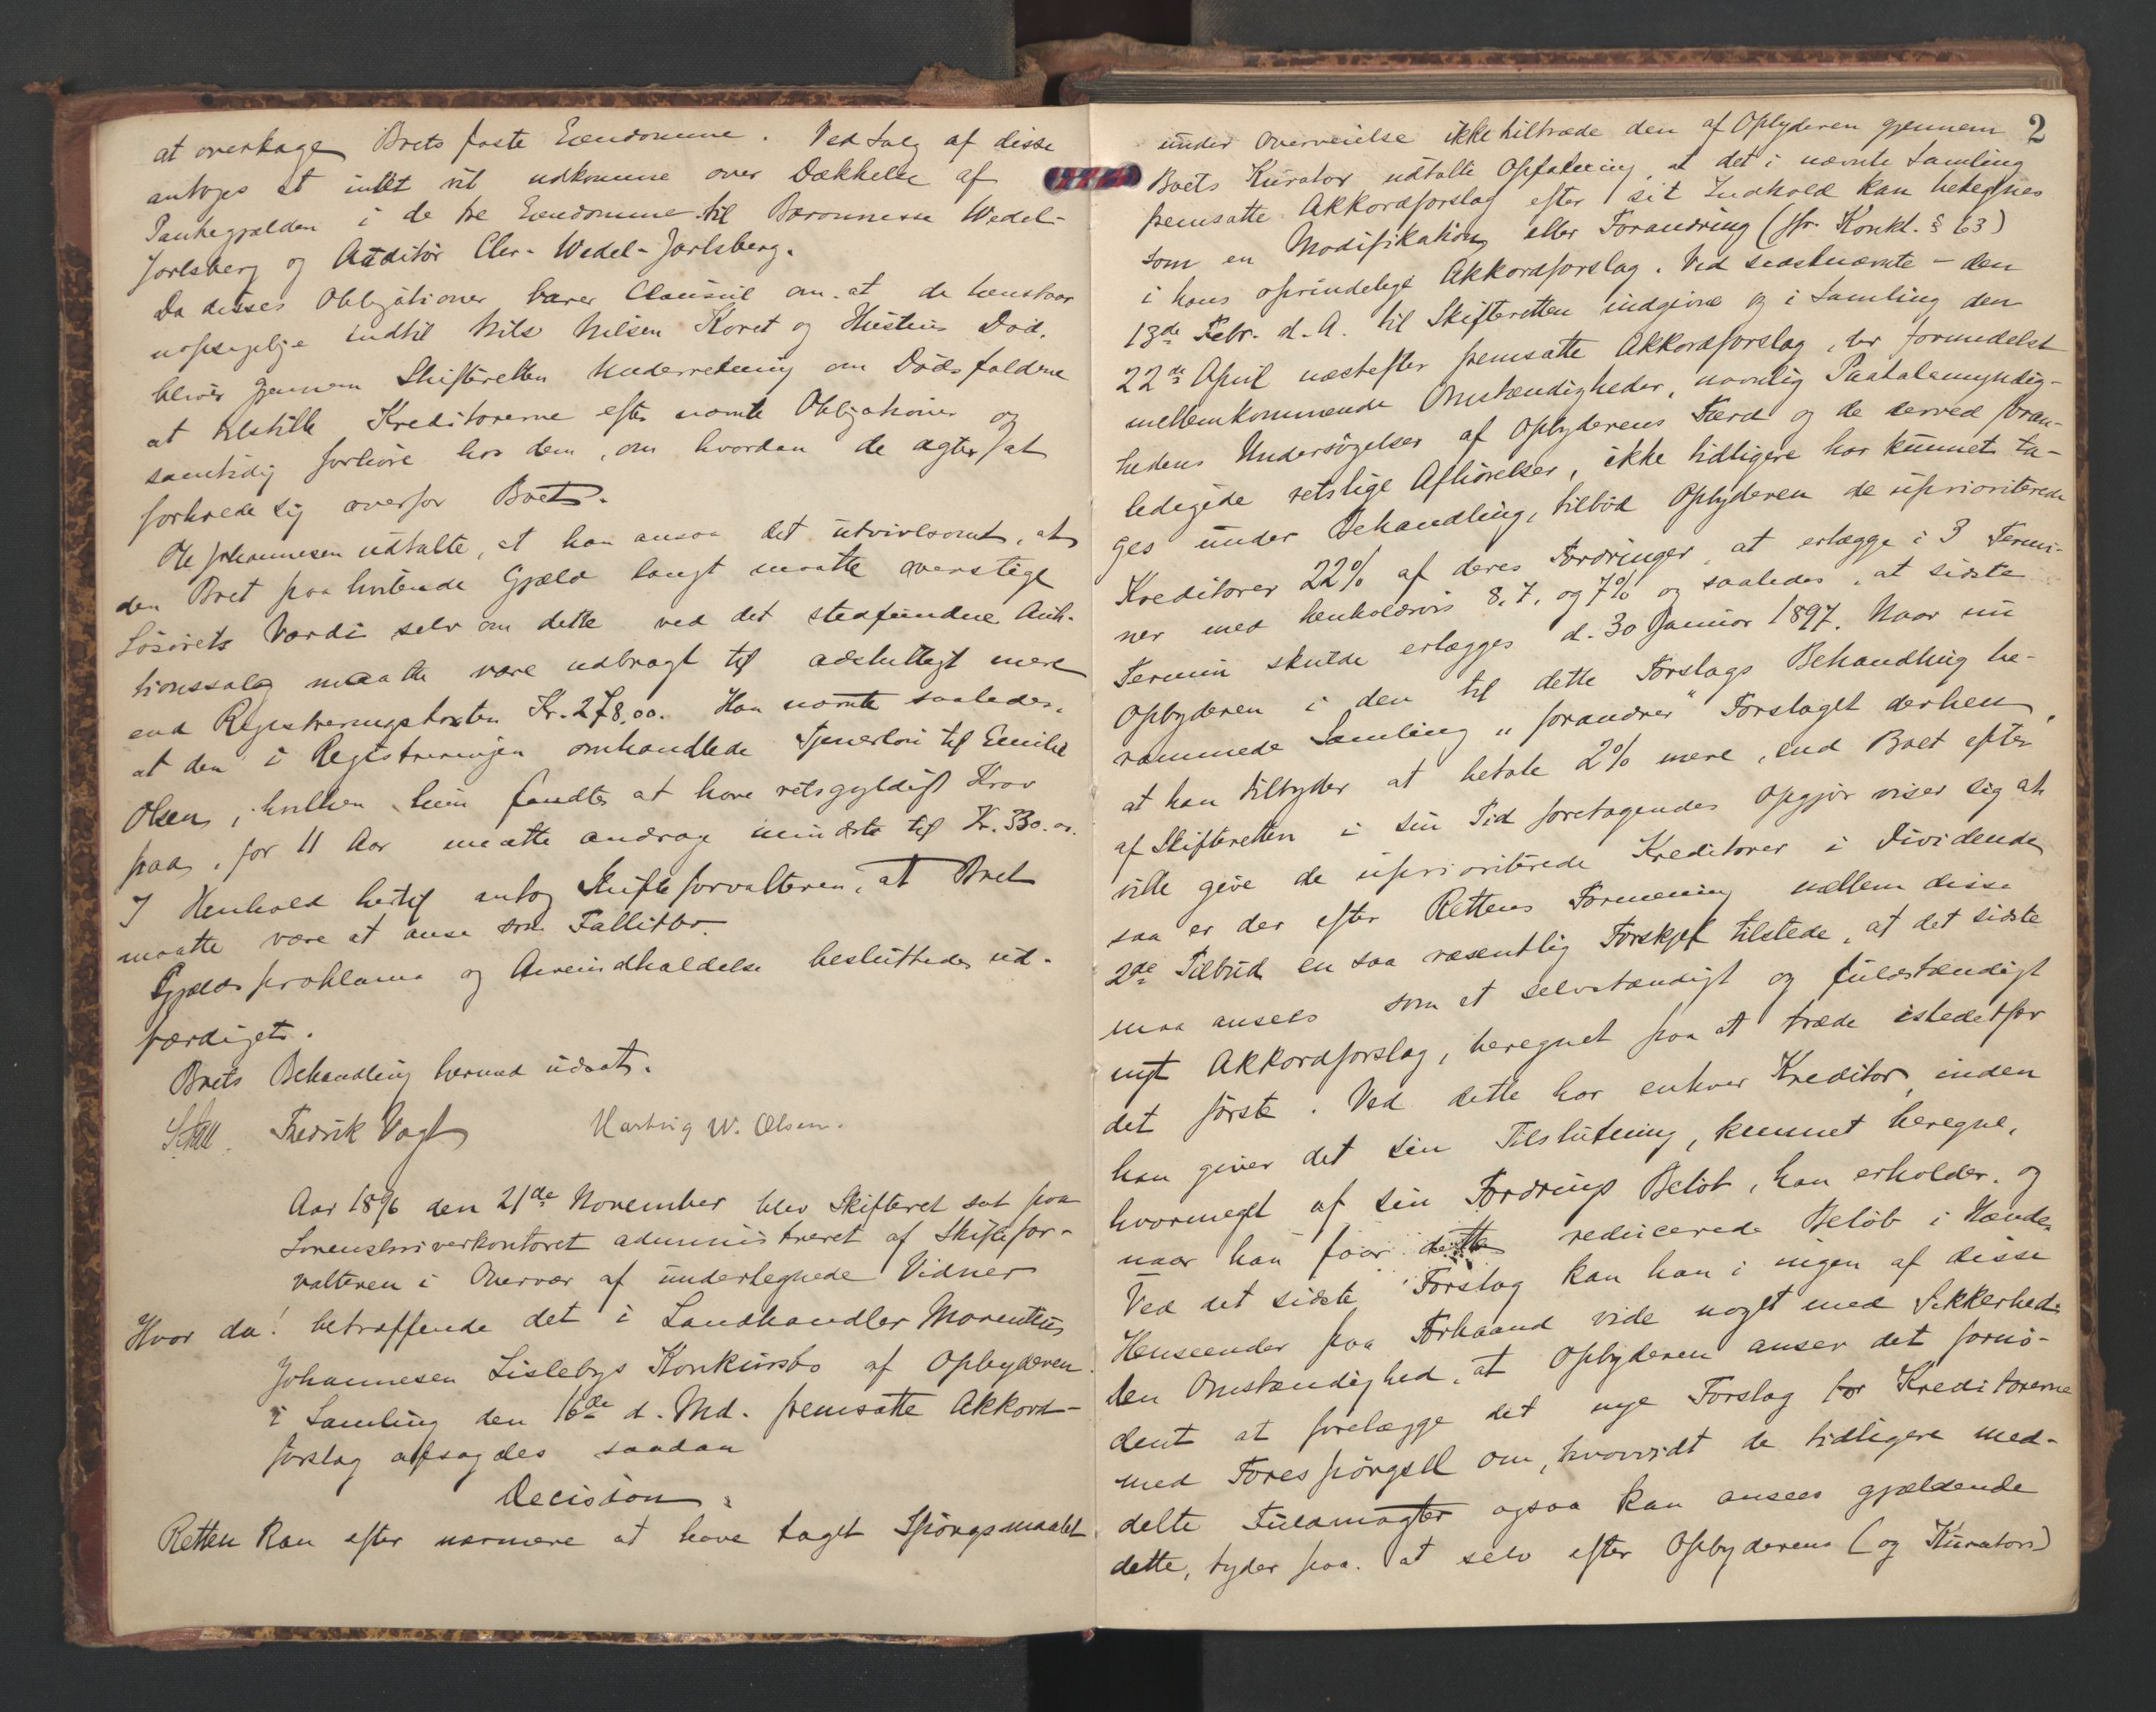 at overtage Boets faste Eiendomme. Ved Salg af disse
antoges at intet vil udkomme over Dækkelse af
Pantegjælden i de tre Eiendomme til Baronnesse Wedel-
Jarlsberg og Auditør Chr. Wedel-Jarlsberg.
Da disses Obligationer bærer Clausul om at de henstaar
uopsigelige indtil Nils Nilsen Koret og Hustrus Død,
bliver gjennem Skifteretten Underretning om Dødsfaldene
at tilstille Kreditorerne efter nævnte Obligationer og
samtidig forhøre hos dem, om hvordan de agter at
forholde sig overfor Boet.
Ole Johannesen udtalte, at han ansaa det utvivlsomt, at
den Boet paahvilende Gjæld langt maatte overstige
Løsørets Værdi selv om dette ved det stedfundne Auk-
tionssalg maatte være udbragt til adskilligt mere
end Registreringstaxten Kr. 278,00. Han nævnte saaledes,
at den i Registreringen omhandlede Tjenerløn til Emilie
Olsen, hvilken hun fandtes at have retsgyldigt Krav
paa, for 11 Aar maatte andrage mindst til Kr. 330.00.
I Henhold hertil antog Skifteforvalteren, at Boet
maatte være at anse som Fallitbo.
Gjældsproklama og Arveindkaldelse besluttedes ud-
færdiget.
Boets Behandling hermed udsat.
Fredrik Vogt Hartvig W. Olsen.
Aar 1896 den 21de November blev Skifteret sat paa
Sorenskriverkontoret administreret af Skiftefor-
valteren i Overvær af undertegnede Vidner
Hvor da! betræffende det i Landhandler Morentius
Johannesen Lislebys Konkursbo af Opbyderen
i Samling den 16de d. Md. fremsatte Akkord-
forslag afsagdes saadan
Decision:
Retten kan efter nærmere at have taget Spørgsmaalet
2
under Overveielse ikke tiltræde den af Opbyderen gjennem
Boets Kurator udtalte Opfatning, at det i nævnte Samling
fremsatte Akkordforslag efter sit Indhold kan betegnes
som en Modifikation eller Forandring (jfr. Konkl. § 63)
i hans oprindelige Akkordforslag. Ved sidstnævnte – den
13de Febr. d. A. til Skifteretten indgivne og i Samling den
22de April næstefter fremsatte Akkordforslag, der formedelst
mellemkommende Omstændigheder, navnlig Paatalemyndig-
hedens Undersøgelser af Opbyderens Færd og de derved foran-
ledigede retslige Afhørelser, ikke tidligere har kunnet ta-
ges under Behandling, tilbød Opbyderen de uprioriterede
Kreditorer 22% af deres Fordringer, at erlægge i 3 Termi-
ner med henholdsvis 8, 7, og 7% og saaledes, at sidste
Termin skulde erlægges d. 30 Januar 1897. Naar nu
Opbyderen i den til dette Forslags Behandling be-
rammede Samling "forandrer" Forslaget derhen,
at han tilbyder at betale 2% mere, end Boet efter
af Skifteretten i sin Tid foretagendes Opgjør viser sig at
ville give de uprioriterede Kreditorer i Dividende,
saa er der efter Rettens Formening mellem disse
2de Tilbud en saa væsentlig Forskjel tilstede, at det sidste
maa ansees som et selvstændigt og fuldstændigt
nyt Akkordforslag, beregnet paa at træde istedetfor
det første. Ved dette har enhver Kreditor, inden
han giver det sin Tilslutning, kunnet beregne,
hvormeget af sin Fordrings Beløb, han erholder, og
naar han faar dette reducerede Beløb i Hænde.
Ved det sidste Forslag kan han i ingen af disse
Henseender paa Forhaand vide noget med Sikkerhed.
Den Omstændighed, at Opbyderen anser det fornø-
dent at forelægge det nye Forslag for Kreditorerne
med Forespørgsel om, hvorvidt de tidligere med-
delte Fuldmagter ogsaa kan ansees gjældende
dette, tyder paa, at selv efter Opbyderens (og Kurators)